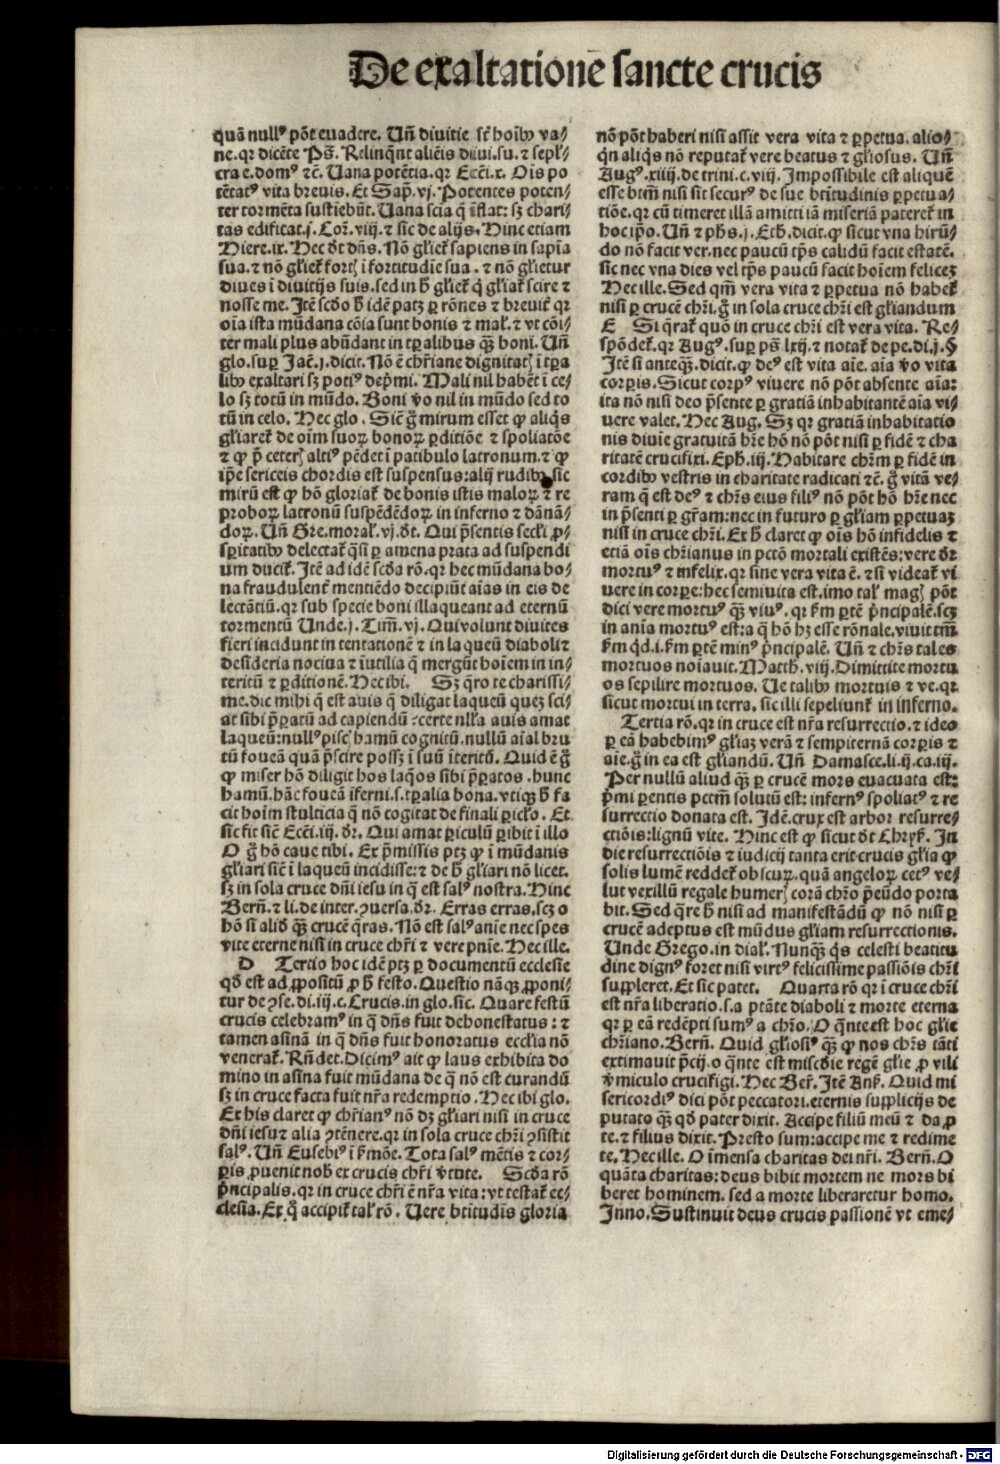 De exaltatione̅ sancte crucis
quā nullꝰ pōt euadere. Un̄ diuitie sr̄ hoīb va⸗
ne. qꝛ dicēte Ps̄. Relinqn̄t aliēis diui. su. ⁊ sepl̄⸗
cra e. domꝰ ⁊c̄. Uana potētia. qꝛ Ecc̄i. x. Ois po
tētatꝰ vita breuis. Et Sap̄. vj. Potentes poten⸗
ter tormēta sustiebūt. Uana scīa q̄ īflat: sꝫ chari⸗
tas edificat. j. Coꝛ̄. viij. ⁊ sic de alijs. Hinc etiam
Hiere. ix. Hec dt̄ dn̄s. Nō gl̄iet̄ sapiens in sapīa
sua. ⁊ nō gl̄iet̄ fortī ī fortitudīe sua. ⁊ nō gl̄ietur
diues ī diuitijs suis. sed in h̄ gl̄iet̄ q̄ gl̄iat̄ scire ⁊
nosse me. Itē scd̄o h̄ idē patꝫ ꝑ rōnes ⁊ breuit̄ qꝛ
oīa ista mūdana cōia sunt bonis ⁊ mal̄. ⁊ vt cōi⸗
ter mali plus abūdant in tꝑalibus qꝫ boni. Un̄
glo. suꝑ Jac̄. j. dicit. Nō ē chr̄iane dignitatꝭ ī tꝑa
lib exaltari sꝫ potiꝰ dep̄mi. Mali nil habēt ī ce⸗
lo sꝫ totū in mūdo. Boni v̄o nil in mūdo sed to
tū in celo. Hec glo. Sic̄ ḡ mirum esset ꝙ aliq̄s
gl̄iaret̄ de oīm suoꝝ bonoꝝ ꝑditiōe ⁊ spoliatōe
⁊ ꝙ p̄ ceterꝭ altiꝰ pēdet ī patibulo latronum. ⁊ ꝙ
ip̄e sericeis chordis est suspensus: alij rudib sic
mirū est ꝙ hō gloriat̄ de bonis istis maloꝝ ⁊ re
proboꝝ latronū suspēdēdoꝝ in inferno ⁊ dānā⸗
doꝝ. Un̄ Gre. moral̄. vj. dt̄. Qui p̄sentis secl̄i ꝓ⸗
speritatib delectat̄ q̄si ꝑ amena prata ad suspendi
um ducit̄. Itē ad idē scd̄a rō. qꝛ hec mūdana bo⸗
na fraudulent̄ mentiēdo decipiūt aīas in eis de
lectātiū. qꝛ sub specie boni illaqueant ad eternū
tormentū Unde. j. Tim̄. vj. Qui volunt diuites
fieri incidunt in tentationē ⁊ in laqueū diaboli ⁊
desideria nociua ⁊ iutilia q̄ mergūt hoīem in in⸗
teritū ⁊ ꝑditionē. Hec ibi. Sꝫ q̄ro te charissi⸗
me. dic mihi q̄ est auis q̄ diligat laqueū queꝫ sci⸗
at sibi p̄paratū ad capiendū: certe nl̄la auis amat
laqueū: nullꝰ piscꝭ hamū cognitū. nullū aīal bru
tū foueā quā p̄scire possꝫ ī suū īteritū. Quid ē ḡ
ꝙ miser hō diligit hos laq̄os sibi p̄paratos. hunc
hamū. hāc foueā īferni. s. tꝑalia bona. vtiqꝫ h̄ fa
cit hoīm stulticia q̄ nō cogitat de finali piclo̅. Et
sic fit sic̄ Ecc̄i. iij. dr̄. Qui amat ꝑiculū ꝑibit ī illo
O ḡ hō caue tibi. Ex p̄missis ptꝫ ꝙ ī mūdanis
gl̄iari sic̄ ī laqueū incidisse: ⁊ de h̄ gl̄iari nō licet.
sꝫ in sola cruce dn̄i iesu in q̄ est salꝰ nostra. Hinc
Bern̄. ⁊ li. de inter. ↄuersa. dr̄. Erras erras. scꝫ o
hō si aliō qꝫ crucē q̄ras. Nō est salꝰ anīe nec spes
vite eterne nisi in cruce chr̄i ⁊ vere pn̄ie. Hec ille.
D Tertio hoc idē ptꝫ ꝑ documentū ecclesie
qd̄ est ad ꝓpositū ꝓ h̄ festo. Questio nāqꝫ ꝓponi⸗
tur de ↄse. di. iij. c. Crucis. in glo. sic. Quare festū
crucis celebramꝰ in q̄ dn̄s fuit dehonestatus: ⁊
tamen asinā in q̄ dn̄s fuit honoratus ecclīa nō
venerat̄. Rn̄det. Dicimꝰ ait ꝙ laus exhibita do
mino in asina fuit mūdana de q̄ nō est curandū
sꝫ in cruce facta fuit nr̄a redemptio. Hec ibi glo.
Et his claret ꝙ chr̄ianꝰ nō dꝫ gl̄iari nisi in cruce
dn̄i iesu ⁊ alia ↄtēnere. qꝛ in sola cruce chr̄i ↄsistit
salꝰ. Un̄ Eusebiꝰ ī ẜmōe. Tota salꝰ mētis ⁊ cor⸗
ꝑis ꝓuenit nob̄ ex crucis chr̄i v̄tute. Scd̄a rō
p̄ncipalis. qꝛ in cruce chr̄i ē nr̄a vita: vt testat̄ ec⸗
clesia. Ex q̄ accipit̄ tal̄ rō. Uere btītudīs gloria
nō pōt haberi nisi assit vera vita ⁊ ꝑpetua. alio⸗
q̄n aliq̄s nō reputat̄ vere beatus ⁊ gl̄iosus. Un̄
Augꝰ. xiiij. de trini. c. viij. Impossibile est aliquē
esse btm̄ nisi sit securꝰ de sue btītudinis ꝑpetua⸗
tiōe. qꝛ cū timeret illā amitti iā miseriā pateret̄ in
hoc ip̄o. Un̄ ⁊ phs̄. j. Eth̄. dicit. ꝙ sicut vna hirū⸗
do nō facit ver. nec paucū tp̄s calidū facit estatē.
sic nec vna dies vel tp̄s paucū facit hoīem feliceꝫ
Hec ille. Sed qm̄ vera vita ⁊ ꝑpetua nō habet̄
nisi ꝑ crucē chr̄i. ḡ in sola cruce chr̄i est gl̄iandum
E Si q̄rat̄ quō in cruce chr̄i est vera vita. Re⸗
spōdet̄. qꝛ Augꝰ. suꝑ ps̄ lxij. ⁊ notat̄ de pe. di. j. §
Itē si anteqꝫ. dicit. ꝙ deꝰ est vita aīe. aīa v̄o vita
corꝑis. Sicut corpꝰ viuere nō pōt absente aīa:
ita nō nisi deo p̄sente ꝑ gratiā inhabitantē aīa vi⸗
uere valet. Hec Aug. Sꝫ qꝛ gratiā inhabitatio
nis diuīe gratuitā hr̄e hō nō pōt nisi ꝑ fidē ⁊ cha
ritatē crucifixi. Eph̄. iij. Habitare chr̄m ꝑ fidē in
cordib vestris in charitate radicati ⁊c̄. ḡ vitā ve⸗
ram q̄ est deꝰ ⁊ chr̄s eius filiꝰ nō pōt hō hr̄e nec
in p̄senti ꝑ gr̄am: nec in futuro ꝑ gl̄iam ꝑpetuaꝫ
nisi in cruce chr̄i. Ex h̄ claret ꝙ oīs hō infidelis ⁊
etiā oīs chr̄ianus in pctō mortali existēs: vere dr̄
mortuꝰ ⁊ infelix. qꝛ sine vera vita ē. ⁊ si videat̄ vi
uere in corꝑe: hec semiuita est. imo tal̄ magꝭ pōt
dici vere mortuꝰ qꝫ viuꝰ. qꝛ ẜm ꝑtē p̄ncipalē. scꝫ
in anīa mortuꝰ est: a q̄ hō hꝫ esse rōnale. viuit tm̄
ẜm qd̄. i. ẜm ꝑtē minꝰ p̄ncipalē. Un̄ ⁊ chr̄s tales
mortuos noīauit. Matth. viij. Dimittite mortu
os sepilire mortuos. Ue talib mortuis ⁊ ve. qꝛ
sicut mortui in terra. sic illi sepeliunt̄ in inferno.
Tertia rō. qꝛ in cruce est nr̄a resurrectio. ⁊ ideo
ꝑ eā habebimꝰ gl̄iaꝫ verā ⁊ sempiternā corꝑis ⁊
aīe. ḡ in ea est gl̄iandū. Un̄ Damasce. li. ij. ca. iij.
Per nullū aliud qꝫ ꝑ crucē mors euacuata est:
p̄mi ꝑentis pctm̄ solutū est: infernꝰ spoliatꝰ ⁊ re
surrectio donata est. Idē. crux est arbor resurre⸗
ctiōis: lignū vite. Hinc est ꝙ sicut dt̄ Chrys̄. In
die resurrectiōis ⁊ iudicij tanta erit crucis gl̄ia ꝙ
solis lumē reddet̄ obscuꝝ. quā angeloꝝ cetꝰ ve⸗
lut vexillū regale humerꝭ corā chr̄o p̄eūdo porta
bit. Sed q̄re h̄ nisi ad manifestādū ꝙ nō nisi ꝑ
crucē adeptus est mūdus gl̄iam resurrectionis.
Unde Grego. in dial̄. Nunqꝫ q̄s celesti beatitu
dine dignꝰ foret nisi virtꝰ felicissime passiōis chr̄i
suppleret. Et sic patet. Quarta rō qꝛ ī cruce chr̄i
est nr̄a liberatio. s. a ptāte diaboli ⁊ morte eterna
qꝛ ꝑ eā redēpti sumꝰ a chr̄o. O q̄nte est hoc gl̄ie
chr̄iano. Bern̄. Quid gl̄iosiꝰ qꝫ ꝙ nos chr̄s tāti
extimauit p̄cij. o q̄nte est miscd̄ie regē gl̄ie ꝓ vili
v̄miculo crucifigi. Hec Ber̄. Itē Ans̄. Quid mi
sericordiꝰ dici pōt peccatori. eternis supplicijs de
putato qꝫ qd̄ pater dixit. Accipe filiū meū ⁊ da ꝓ
te. ⁊ filius dixit. Presto sum: accipe me ⁊ redime
te. Hec ille. O īmensa charitas dei nr̄i. Bern̄. O
quāta charitas: deus bibit mortem ne mors bi
beret hominem. sed a morte liberaretur homo.
Inno. Sustinuit deus crucis passionē vt eme⸗
Digitalisierung gefördert durch die Deutsche Forschungsgemeinschaft - DFG